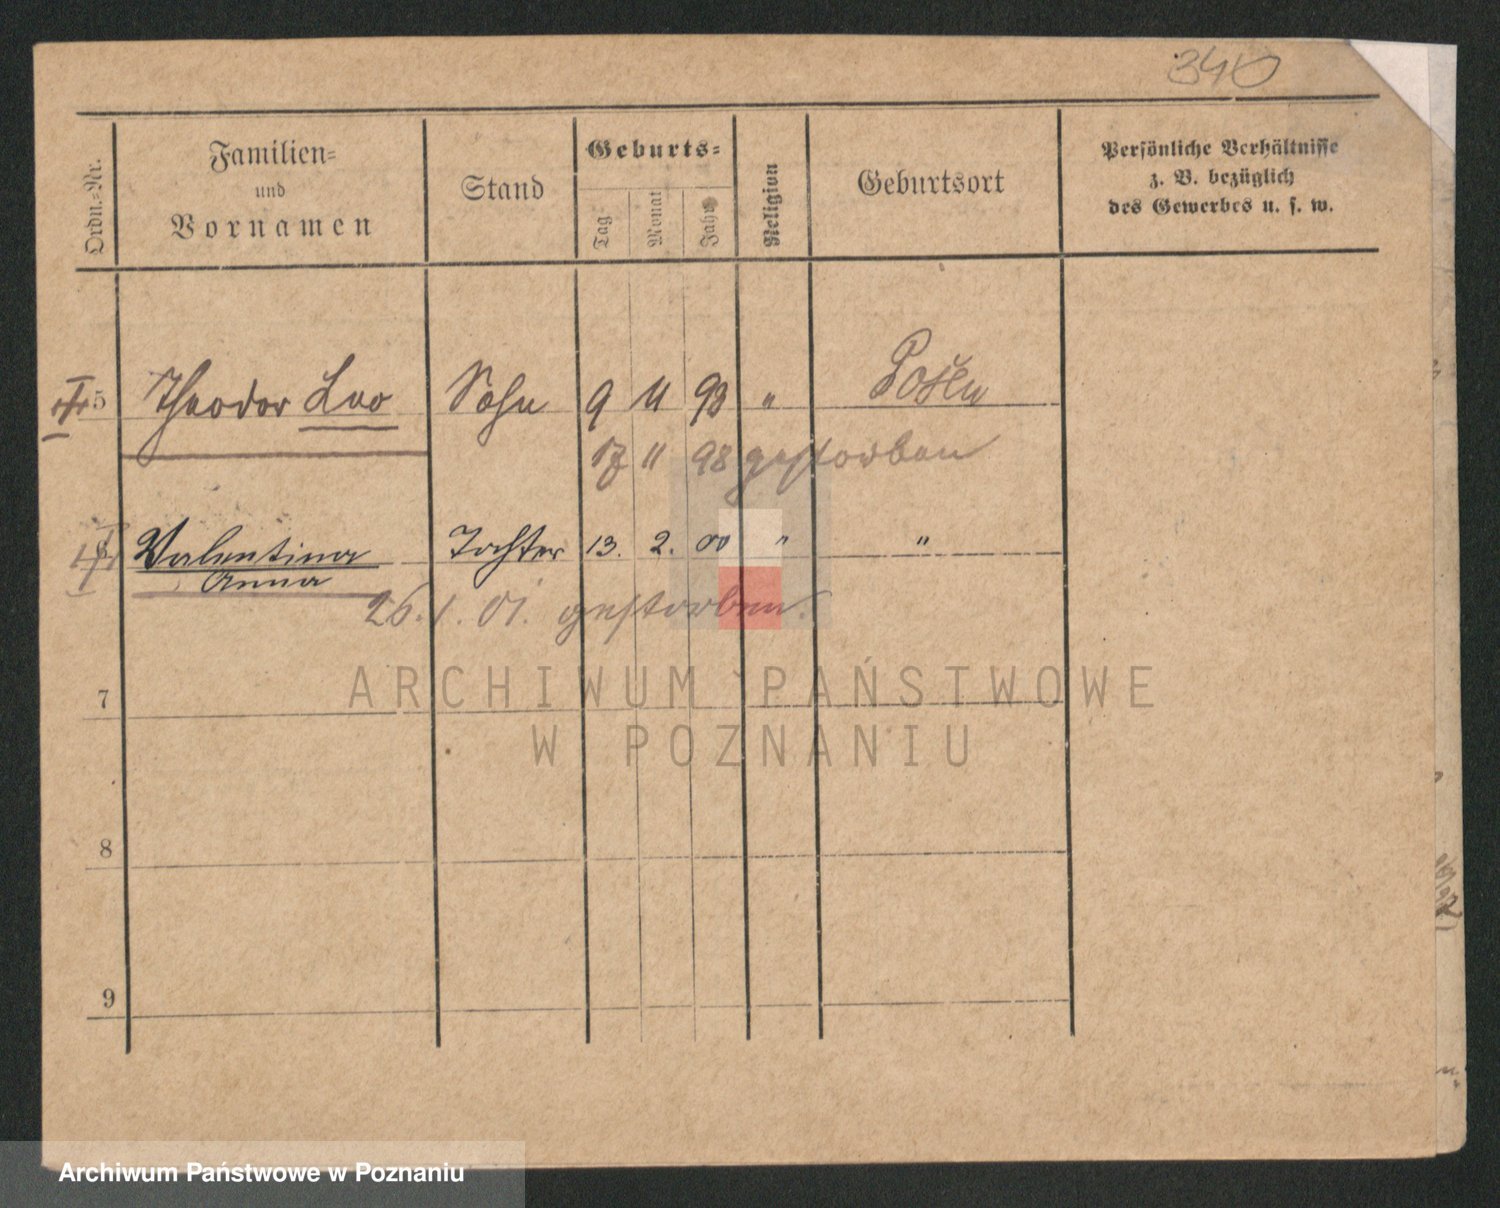 340
Ordn.-Nr.
Familien-
und
Vornamen
Stand
Geburts-
Tag
Monat
Jahr
Religion
Geburtsort
Persönliche Verhältnisse
z. B. bezüglich
des Gewerbes u. s. w.
5 Theodor Leo Sohn 9 11 98 " Posen
17 11 98 gestorben
6 Valentina Tochter 13. 2. 00 " "
Anna
26. 1. 01. gestorben.
ARCHIWUM PAŃSTWOWE
W POZNANIU
7
8
9
Archiwum Państwowe w Poznaniu